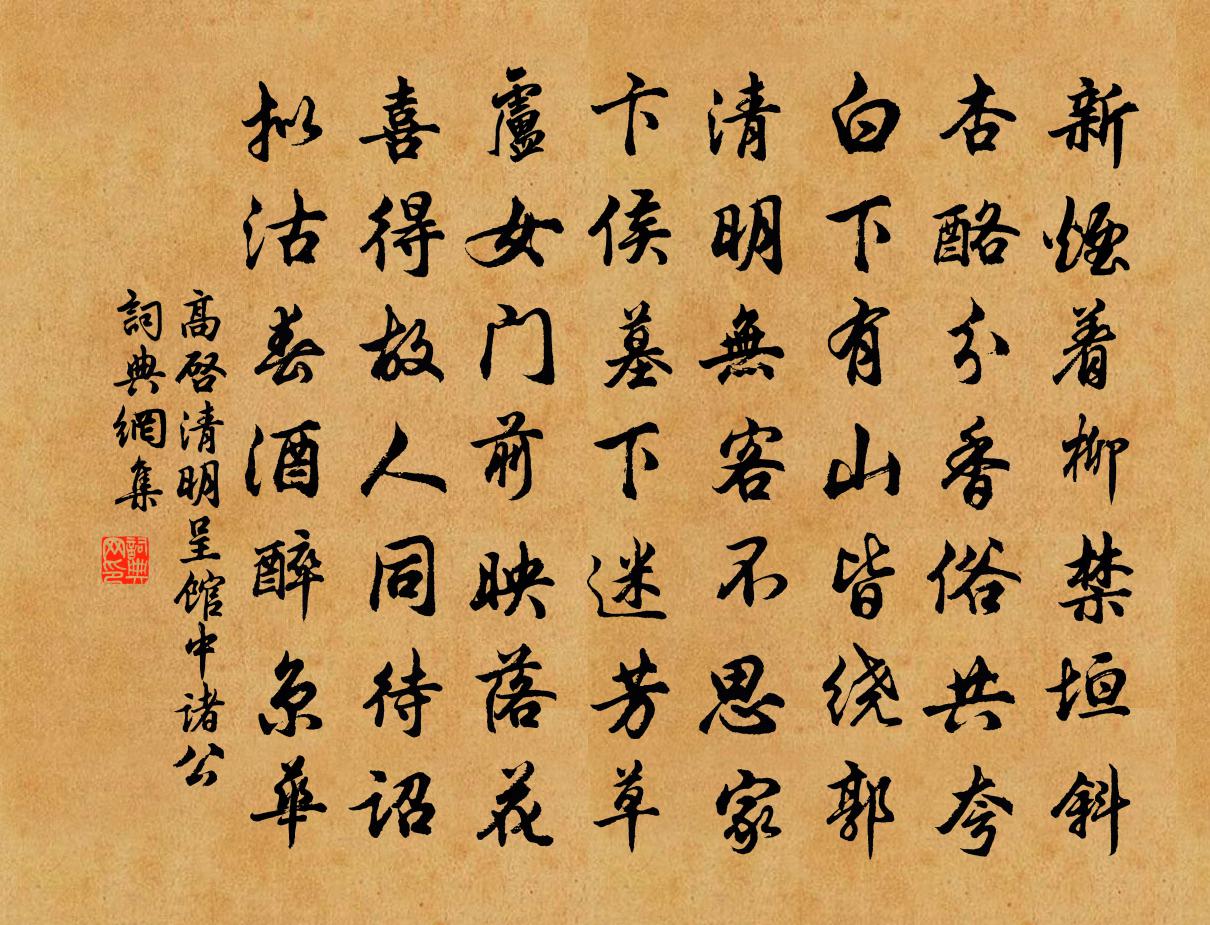 新煙着柳禁垣斜
杏酪分香俗共夸
白下有山皆绕郭
清明無客不思家
卞侯墓下迷芳草
盧女门前映落花
喜得故人同待詔
拟沽春酒醉京華
高啓清明呈馆中诸公
詞典網集
詞典网印